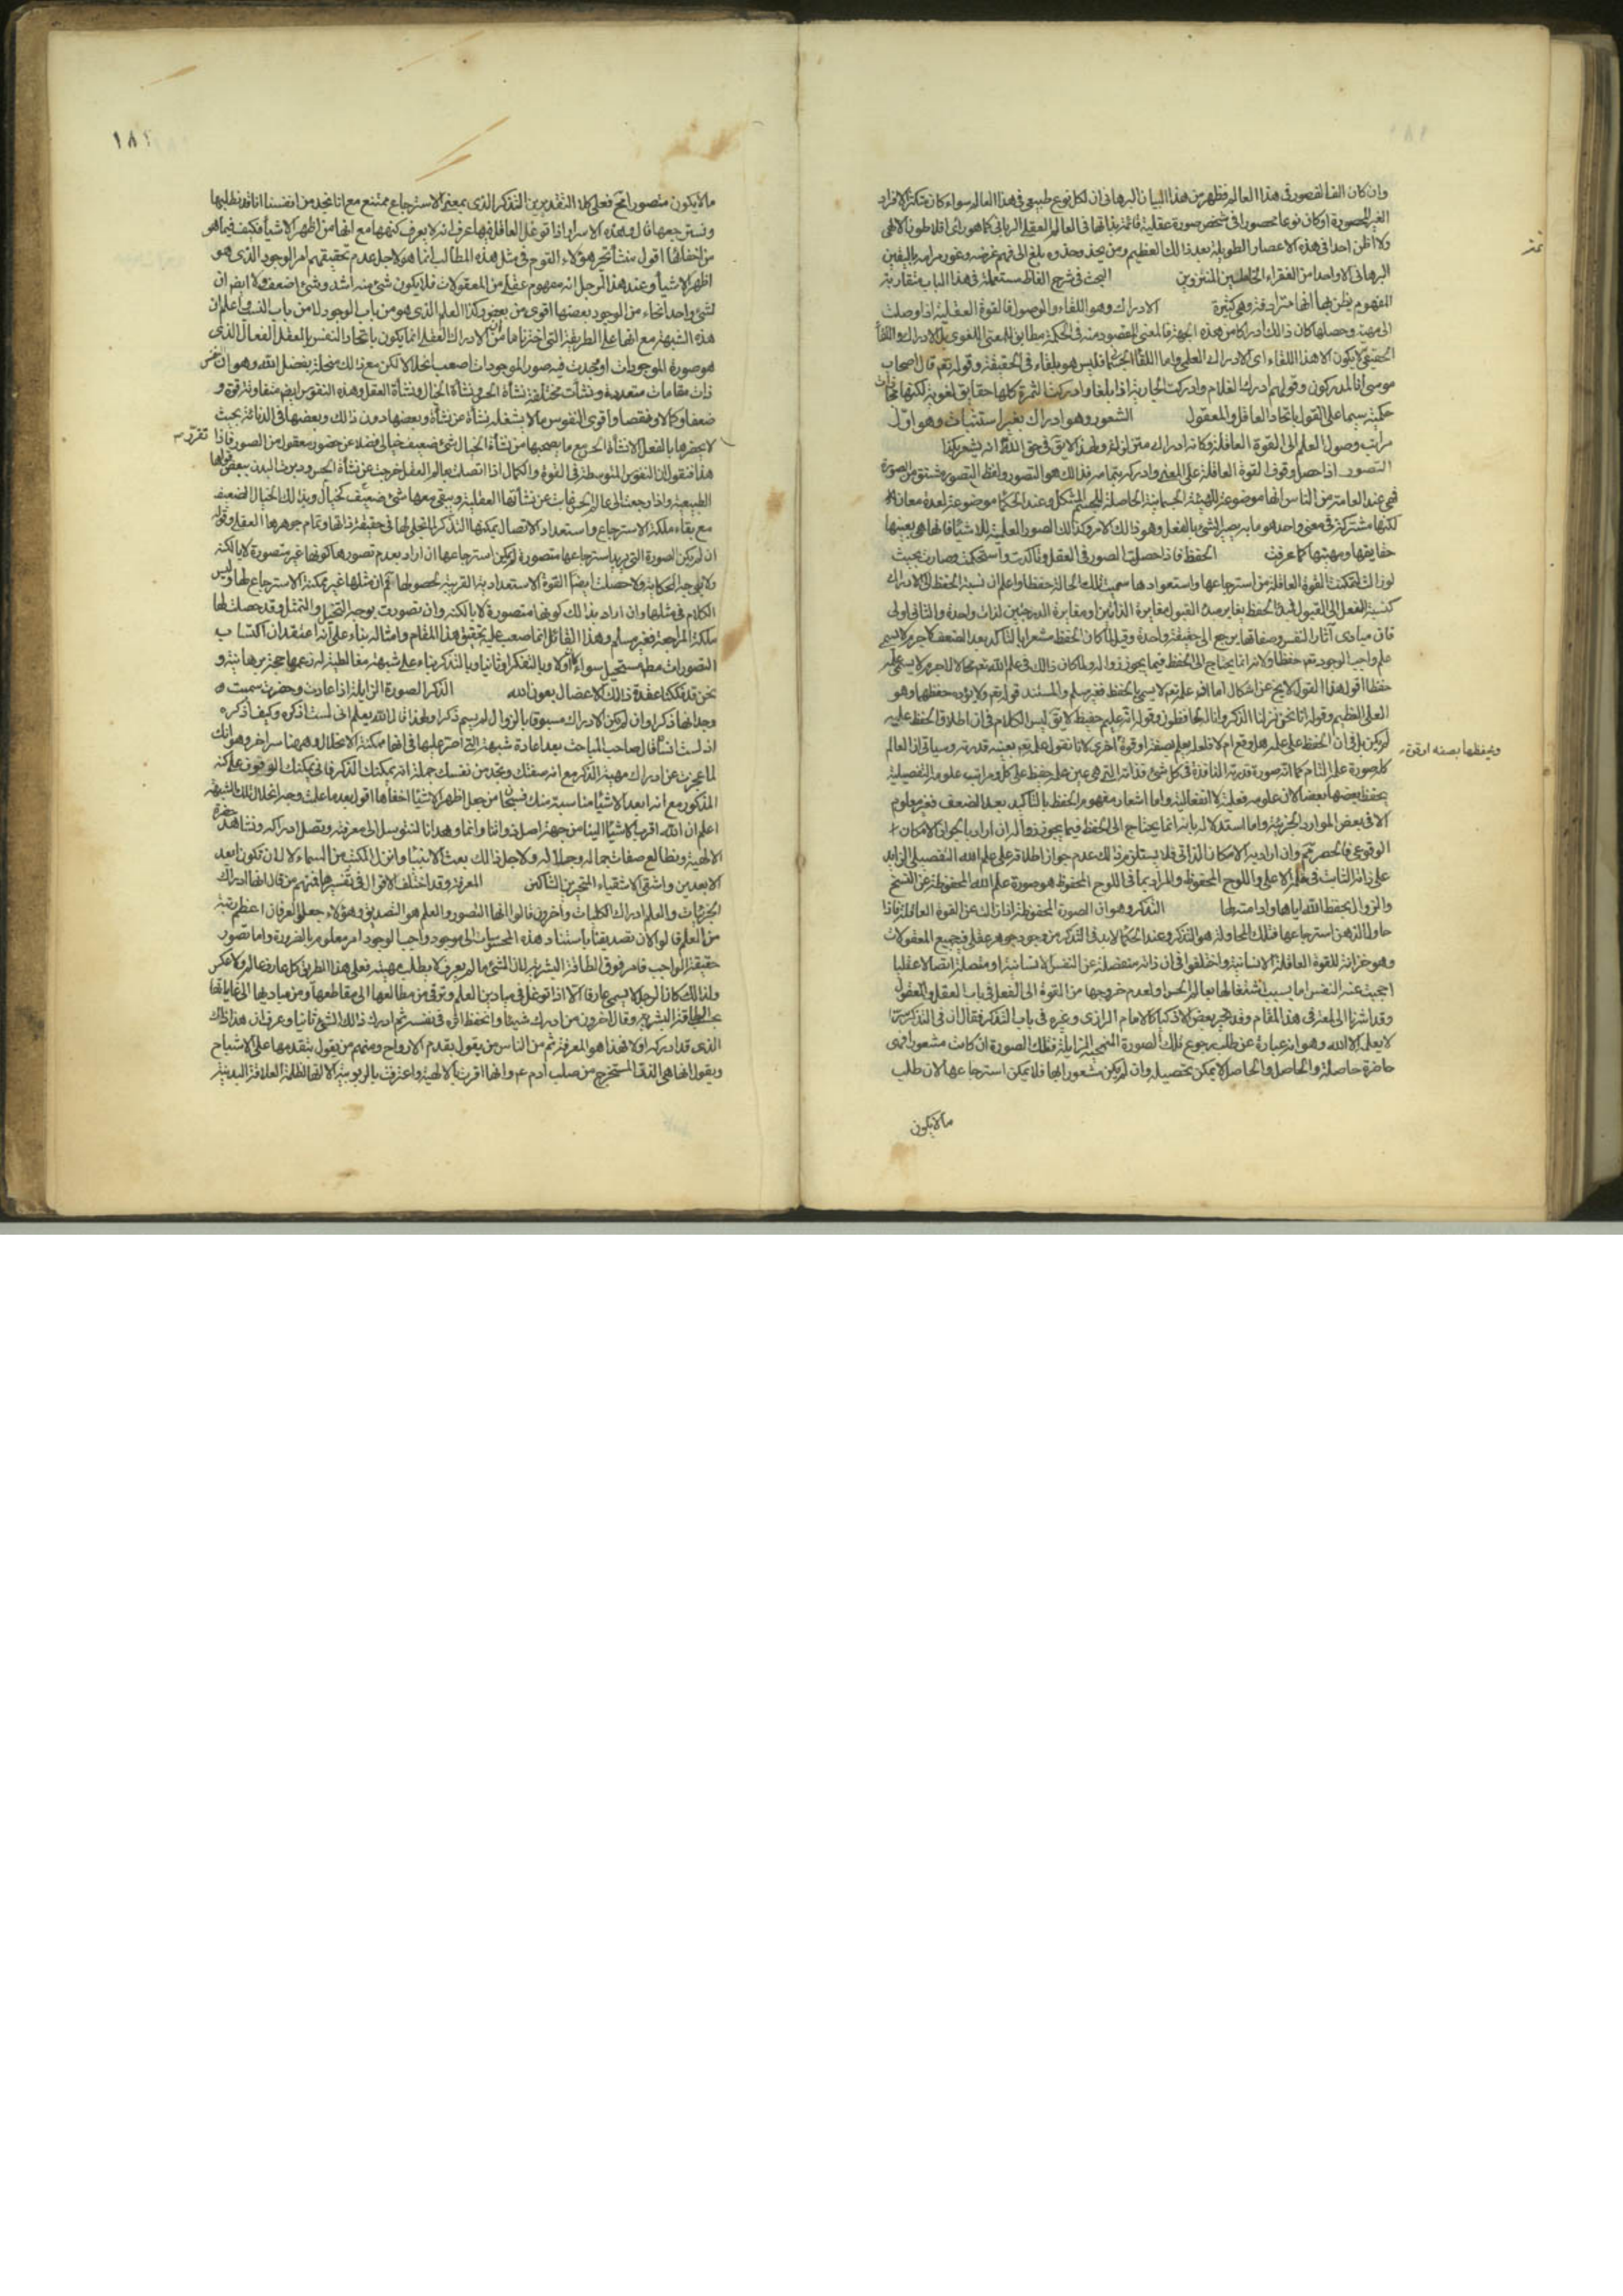 وان كان الفا لقصور في هذا العالم فظهر من هذا البيان البرهاني ان لكل نوع طبيعي في هذا العالم سواء كان متكثر الافراد
الغير المحصورة او كان نوعا محصورا في شخص صورة عقلية قائمة بذاتها في العالم العقلي الرباني كما هو راى افلاطون الالهي
ولا اظن احدا في هذه الاعصار الطويلة بعد ذالك العظيم ومن يحذو حذوه بلغ الى فهم غرضه وغور مرامه باليقين
البرهاني الا واحدا من الفقراء الخاملين المنزوين البحث في شرح الفاظ مستعملة في هذا الباب متقاربة
المفهوم يظن بها انها مترادفة وهي كثيرة الادراك وهو اللقاء والوصول فالقوة العقلية اذا وصلت
الى مهية وحصلها كان ذالك ادراكا من هذه الجهة فالمعنى المقصود منه في الحكمة مطابق للمعنى اللغوي بل الادراك واللقا
الحقيقي لا يكون الا هذا اللقاء اى الادراك العلمي واما اللقا الجسماني فليس هو بلقاء في الحقيقة وقوله تع قال اصحاب
موسى انا لمدركون وقولهم ادرك الغلام وادركت الجارية اذا بلغا وادركت الثمرة كلها حقايق لغوية لكنها مجازات
حكمية سيما على القول باتحاد العاقل والمعقول الشعور وهو ادراك بغير استثبات وهو اول
مراتب وصول العلم الى القوة العاقلة وكانه ادراك متزلزل ولهذا لايق في حق الله انه يشعر بكذا
التصور اذا حصل وقوف القوة العاقلة على المعنى وادركه بتمامه فذالك هو التصور ولفظ التصور مشتق من الصورة
فهي عند العامة من الناس انها موضوعة للهيئة الجسمانية الحاصلة للجسم المشكل وعند الحكما موضوعة لعدة معان الا
لكنها مشتركة في معنى واحد هو ما به يصير الشئ بالفعل وهو ذالك الامر وكذالك الصور العلمية للاشيا فانها هي بعينها
حقايقها ومهيتها كما عرفت الحفظ فاذا حصلت الصور في العقل وتاكدت واستحكمت وصارت بحيث
لو زالت لتمكنت القوة العاقلة من استرجاعها واستعوادها سميت تلك الحالة حفظا واعلم ان نسبة الحفظ الى الادراك
كنسبة الفعل الى القبول فمبدء الحفظ يغاير مبدء القبول مغايرة الذاتين او مغايرة الدرجتين لذات واحدة والثاني اولى
فان مبادى آثار النفس وصفاتها يرجع الى حقيقة واحدة وقيل لما كان الحفظ مشعرا بالتاكد بعد الضعف لاجرم لا يسمى
علم واجب الوجود تع حفظا ولانه انما يحتاج الى الحفظ فيما يجوز زواله ولما كان ذالك في علم الله تع محالا لاجرم لا يسمى علمه
حفظا اقول هذا القول لا يخ عن اشكال اما انه علمه تع لا يسمى بالحفظ فغير مسلم والمستند قوله تع ولا يؤده حفظهما وهو
العلى العظيم وقوله انا نحن نزلنا الذكر وانا له لحافظون وقوله انه عليم حفيظ لا يق ليس الكلام في ان اطلاق الحفظ عليه
لم يكن بل في ان الحفظ على علمه هل وقع ام لا فلعله يعلم بصفة او قوة اخرى لانا نقول علمه تع بعينه قدرته وسياق ان العالم
كله صورة علمه التام كما انه صورة قدرته النافذة في كل شئ فذاته التي هي عين علمه حفيظ على كل ومراتب علومه التفصيلية
يحفظ بعضها بعضا لان علومه فعلية لا انفعالية واما اشعار مفهوم الحفظ بالتاكيد بعد الضعف فغير معلوم
الا في بعض الموارد الجزئية واما استدلاله بانه انما يحتاج الى الحفظ فيما يجوز زواله ان اراد بالجواز الامكان
الوقوعى فالحصر تم وان اراد به الامكان الذاتي فلا يستلزم ذالك عدم جواز اطلاقه على علم الله التفصيلي الزايد
على ذاته الثابت في قلمه الاعلى واللوح المحفوظ والمراد بما في اللوح المحفوظ هو صورة علم الله المحفوظة عن النسخ
والزوال بحفظ الله اياها وادامته لها التذكر وهو ان الصورة المحفوظة اذا زالت عن القوة العاقلة فاذا
حاول الذهن استرجاعها فتلك المحاولة هو التذكر وعند الحكما لابد في التذكر من وجود جوهر عقلي فيه جميع المعقولات
وهو خزانة للقوة العاقلة الانسانية واختلفوا في ان ذاته منفصلة عن النفس الانسانية او متصلة اتصالا عقليا
احجبت عنه النفس اما بسبب اشتغالها بعالم الحس او لعدم خروجها من القوة الى الفعل في باب العقل والمعقول
وقد اشرنا الى لمعة في هذا المقام وقد تحير بعض الاذكيا كالامام الرازي وغيره في باب التذكر فقال ان في التذكر سرا
لا يعلمه الا الله وهو انه عبارة عن طلب رجوع تلك الصورة المنمحية الزايلة فتلك الصورة ان كانت مشعورا فهى
حاضرة حاصلة والحاصل لا يمكن تحصيله وان لم يكن شعور ا بها فلا يمكن استرجاعها لان طلب
ما لا يكون
ويحفظها بصفة او قوة
١٨٢
ما لا يكون متصورا مح فعلى كلا التقديرين التذكر الذي بمعنى الاسترجاع ممتنع مع انا نجد من انفسنا انا قد نطلبها
ونسترجعها قال وهذه الاسرار اذا توغل العاقل فيها عرف انه لا يعرف كنهها مع انها من اظهر الاشيأ فكيف فيما هو
من اخفائها اقول منشأ تحير هؤلاء القوم في مثل هذه المطالب انما هو لاجل عدم تحقيقهم امر الوجود الذي هو
اظهر الاشيأ وعند هذا الرجل انه مفهوم عقلي من المعقولات فلا يكون شئ منه اشد وشئ اضعف ولا ايض ان
لشئ واحد انحاء من الوجود بعضها اقوى من بعض وكذا العلم الذي هو من باب الوجود لا من باب النسب واعلم ان
هذه الشبهة مع انها على الطريقة التي اخترناها من ان الادراك العقلي انما يكون باتحاد النفس بالعقل الفعال الذي
هو صورة الموجودات او تحدث فيه صور الموجودات اصعب انحلالا لكن مع ذالك منحلة بفضل الله وهو ان النفس
ذات مقامات متعددة ونشأت مختلفة نشأة الحس ونشأة الخيال ونشأة العقل وهذه النفوس ايضا متفاوتة قوة و
ضعفا وكمالا ونقصا واقوى النفوس ما لا يشغله نشأة عن نشأة وبعضها دون ذالك وبعضها في الدنائة بحيث
لا يحضرها بالفعل الا نشأة الحس مع ما يصحبها من نشأة الخيال شئ ضعيف خيالي فضلا عن حضور معقول من الصور فاذا تقرر
هذا فنقول ان النفوس المتوسطة في القوة والكمال اذا اتصلت بعالم العقل خرجت عن نشأة الحس ودبرت البدن ببعض قواها
الطبيعية واذا رجعت الى عالم الحس غابت عن نشأتها العقلية ويبقى معها شئ ضعيف كخيال وبذالك الخيال الضعيف
مع بقاء ملكة الاسترجاع واستعداد الاتصال يمكنها التذكر لما تجلى لها في حقيقة ذاتها وتمام جوهرها العقلي وقوله
ان لم يكن الصورة التي يريد استرجاعها متصورة لم يكن استرجاعها ان اراد بعدم تصورها كونها غير متصورة لا بالكنه
ولا بوجه الحكاية ولا حصلت ايضا القوة الاستعدادية القريبة لحصولها نعم ان مثلها غير ممكنة الاسترجاع لها وليس
الكلام في مثلها وان اراد بذالك كونها متصورة لا بالكنه وان تصورت بوجه التخيل والتمثل وقد حصلت لها
ملكة المراجعة فغير مسلم وهذا القائل انما صعب عليه تحقيق هذا المقام وامثاله بناء على انه اعتقد ان اكتساب
التصورات مط مستحيل سواء كان اولا وبالتفكر او ثانيا وبالتذكر بناء على شبهة مغالطية له زعمها حجة برهانية و
نحن قد فككنا عقدة ذالك الاعضال بعون الله الذكر الصورة الزايلة اذا عادت وحضرت سميت
وجدانها ذكرا وان لم يكن الادراك مسبوقا بالزوال لم يسم ذكرا ولهذا قال الله يعلم اني لست اذكره وكيف اذكره
اذ لست انساه قال صاحب المباحث بعد اعادة شبهته التي اصر عليها في انها ممكنة الانحلال وههنا سر اخر وهو انك
لما عجزت عن ادراك مهية الذكر مع انه صفتك وتجد من نفسك جملة انه يمكنك الذكر فاني يمكنك الوقوف على كنه
المذكور مع انه ابعد الاشيا مناسبة منك فسبحان من جعل اظهر الاشيا اخفاها اقول بعد ما علمت وجه انحلال تلك الشبهة
اعلم ان الله اقرب الاشيا الينا من جهة اصل ذواتنا وانما وهدانا لنتوسل الى معرفته ونصل ادراكه ونشاهد حضرة
الالهية ونطالع صفات جماله وجلاله ولاجل ذالك بعث الانبيا وانزل الكتب من السماء لا لان تكون ابعد
الابعدين واشقى الاشقياء المتحيرين الشاكين المعرفة وقد اختلف الاقوال في تفسيرها فمنهم من قال انها ادراك
الجزئيات والعلم ادراك الكليات وآخرون قالوا انها التصور والعلم هو التصديق وهؤلاء جعلوا العرفان اعظم رتبة
من العلم قالوا لان تصديقنا باستناد هذه المحسوسات الى موجود واجب الوجود امر معلوم بالضرورة واما تصور
حقيقة الواجب فامر فوق الطاقة البشرية لان الشئ ما لم يعرف لا يطلب مهيته فعلى هذا الطريق كل عارف عالم ولا عكس
ولذالك كان الرجل لا يسمى عارفا الا اذا توغل في ميادين العلم وترقى من مطالعها الى مقاطعها ومن مباديها الى غاياتها
بحسب الطاقة البشرية وقال آخرون من ادرك شيئا وانحفظ اثره في نفسه ثم ادرك ذالك الشئ ثانيا وعرف ان هذا ذاك
الذي قد ادركه اولا فهذا هو المعرفة ثم من الناس من يقول بقدم الارواح ومنهم من يقول بتقدمها على الاشباح
ويقول انها هي الذر المستخرج من صلب آدم ع وانها اقرت بالالهية واعترفت بالربوبية الا انها لظلمة العلاقة البدنية